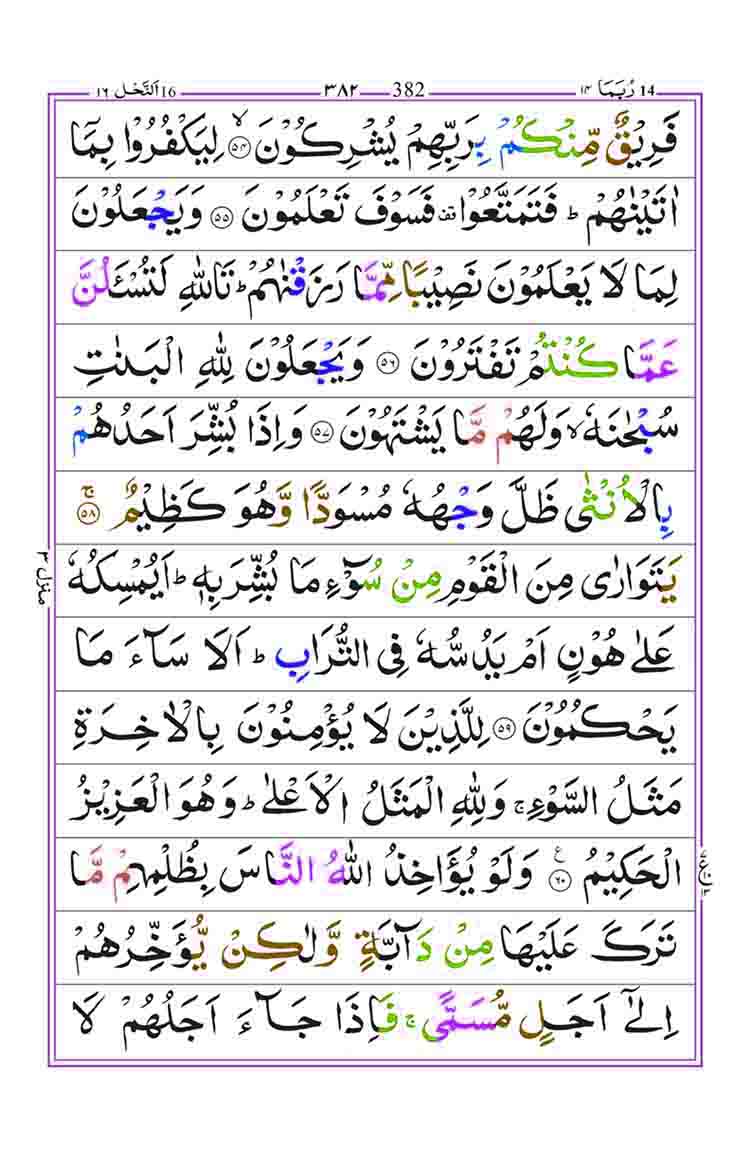 14 رُبَمَا ۱۴ 382 ۳۸۲ 16 اَلنَّحْل ۱۶
فَرِیْقٌ مِّنْكُمْ بِرَبِّهِمْ یُشْرِكُوْنَ ﴿۵۴﴾ۙ لِیَكْفُرُوْا بِمَاۤ
اٰتَیْنٰهُمْ ؕ فَتَمَتَّعُوْا۫ فَسَوْفَ تَعْلَمُوْنَ ﴿۵۵﴾ وَیَجْعَلُوْنَ
لِمَا لَا یَعْلَمُوْنَ نَصِیْبًا مِّمَّا رَزَقْنٰهُمْ ؕ تَاللّٰهِ لَتُسْـَٔلُنَّ
عَمَّا كُنْتُمْ تَفْتَرُوْنَ ﴿۵۶﴾ وَیَجْعَلُوْنَ لِلّٰهِ الْبَنٰتِ
سُبْحٰنَهٗ ۙ وَلَهُمْ مَّا یَشْتَهُوْنَ ﴿۵۷﴾ وَاِذَا بُشِّرَ اَحَدُهُمْ
بِالْاُنْثٰی ظَلَّ وَجْهُهٗ مُسْوَدًّا وَّهُوَ كَظِیْمٌ ﴿۵۸﴾ۚ
یَتَوَارٰی مِنَ الْقَوْمِ مِنْ سُوْٓءِ مَا بُشِّرَ بِهٖ ؕ اَیُمْسِكُهٗ
عَلٰی هُوْنٍ اَمْ یَدُسُّهٗ فِی التُّرَابِ ؕ اَلَا سَآءَ مَا
یَحْكُمُوْنَ ﴿۵۹﴾ لِلَّذِیْنَ لَا یُؤْمِنُوْنَ بِالْاٰخِرَةِ
مَثَلُ السَّوْءِ ۚ وَلِلّٰهِ الْمَثَلُ الْاَعْلٰی ؕ وَهُوَ الْعَزِیْزُ
الْحَكِیْمُ ﴿۶۰﴾ع وَلَوْ یُؤَاخِذُ اللّٰهُ النَّاسَ بِظُلْمِهِمْ مَّا
تَرَكَ عَلَیْهَا مِنْ دَآبَّةٍ وَّلٰكِنْ یُّؤَخِّرُهُمْ
اِلٰۤی اَجَلٍ مُّسَمًّی ۚ فَاِذَا جَآءَ اَجَلُهُمْ لَا
منزل ۳